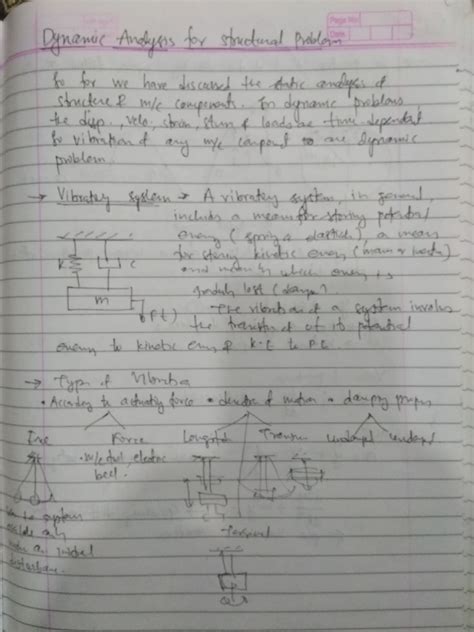 Page No:
Date
Dynamic Analysis for structural Problem
So for we have discussed the static analysis of
structure & m/c components. In dynamic problems
the disp, velo, strain, stress & loads are time dependent
So vibration of any m/c compont are dynamic
problem.
→ Vibratory system → A vibratory system, in general,
includes a mean for storing potential
energy (spring & elasticity) a mean
for storing kinetic energy (mass & inertia)
and mean by which energy is
lost (damper)
K C
m
P(t)
The vibration of a system involves
the transfer of its potential
energy to kinetic energy & K.E to P.E
→ Types of Vibration
• According to actuating force • direction of motion • damping
Free Force Longitud Transver undamped
• m/c tool, electric
bell.
system
initial
disturbance.